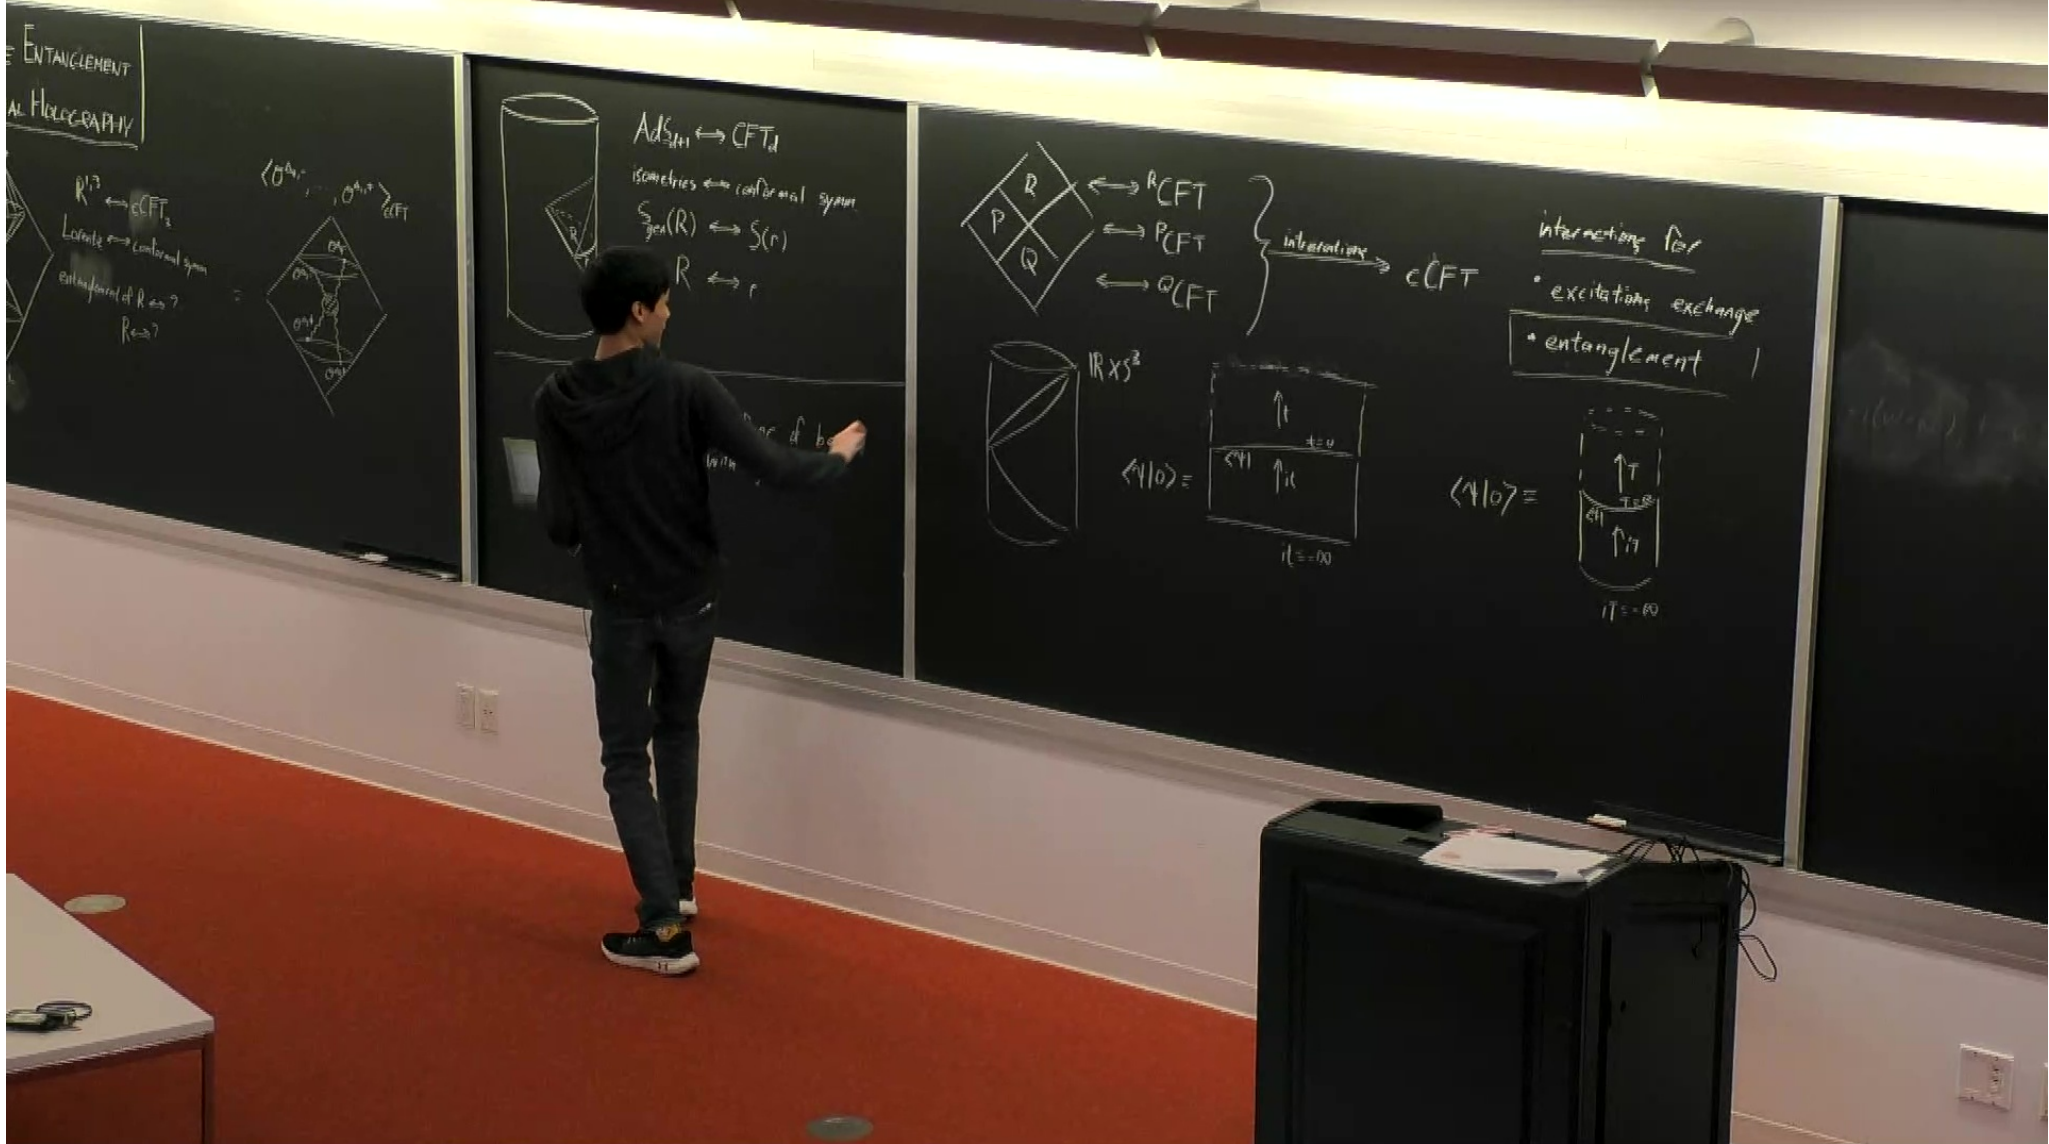 ENTANGLEMENT
AL HOLOGRAPHY
R^{1,3} ⟷ cCFT_2
Lorentz ⟷ conformal symm
entanglement of R ⟷ ?
R ⟷ ?
=
cCFT
AdS_{d+1} ⟷ CFT_d
isometries ⟷ conformal symm
S_{gen}(R) ⟷ S(r)
R ⟷ r
R
of
R
P
Q
⟷ ^RCFT
⟷ ^PCFT
⟷ ^QCFT
interactions
cCFT
interactions for
• excitations exchange
• entanglement
ℝ×S^3
⟨Ψ|0⟩ ≡
↑t
t=0
⟨Ψ|
↑it
it=-∞
⟨Ψ|0⟩ ≡
↑T
⟨Ψ|
↑iT
iT=-∞